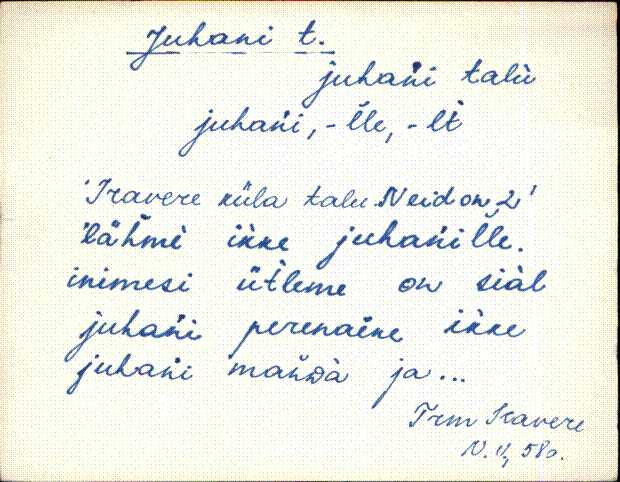 Juhani t.
juhańi talu
juhańi, -lle, -lt
'Iravere küla talu. Neid on 2'
lähmè ikke juhańille.
inimesi ütleme on siäl
juhańi perenaene ikke
juhańi ja...
Trm Iravere
N. 58a.